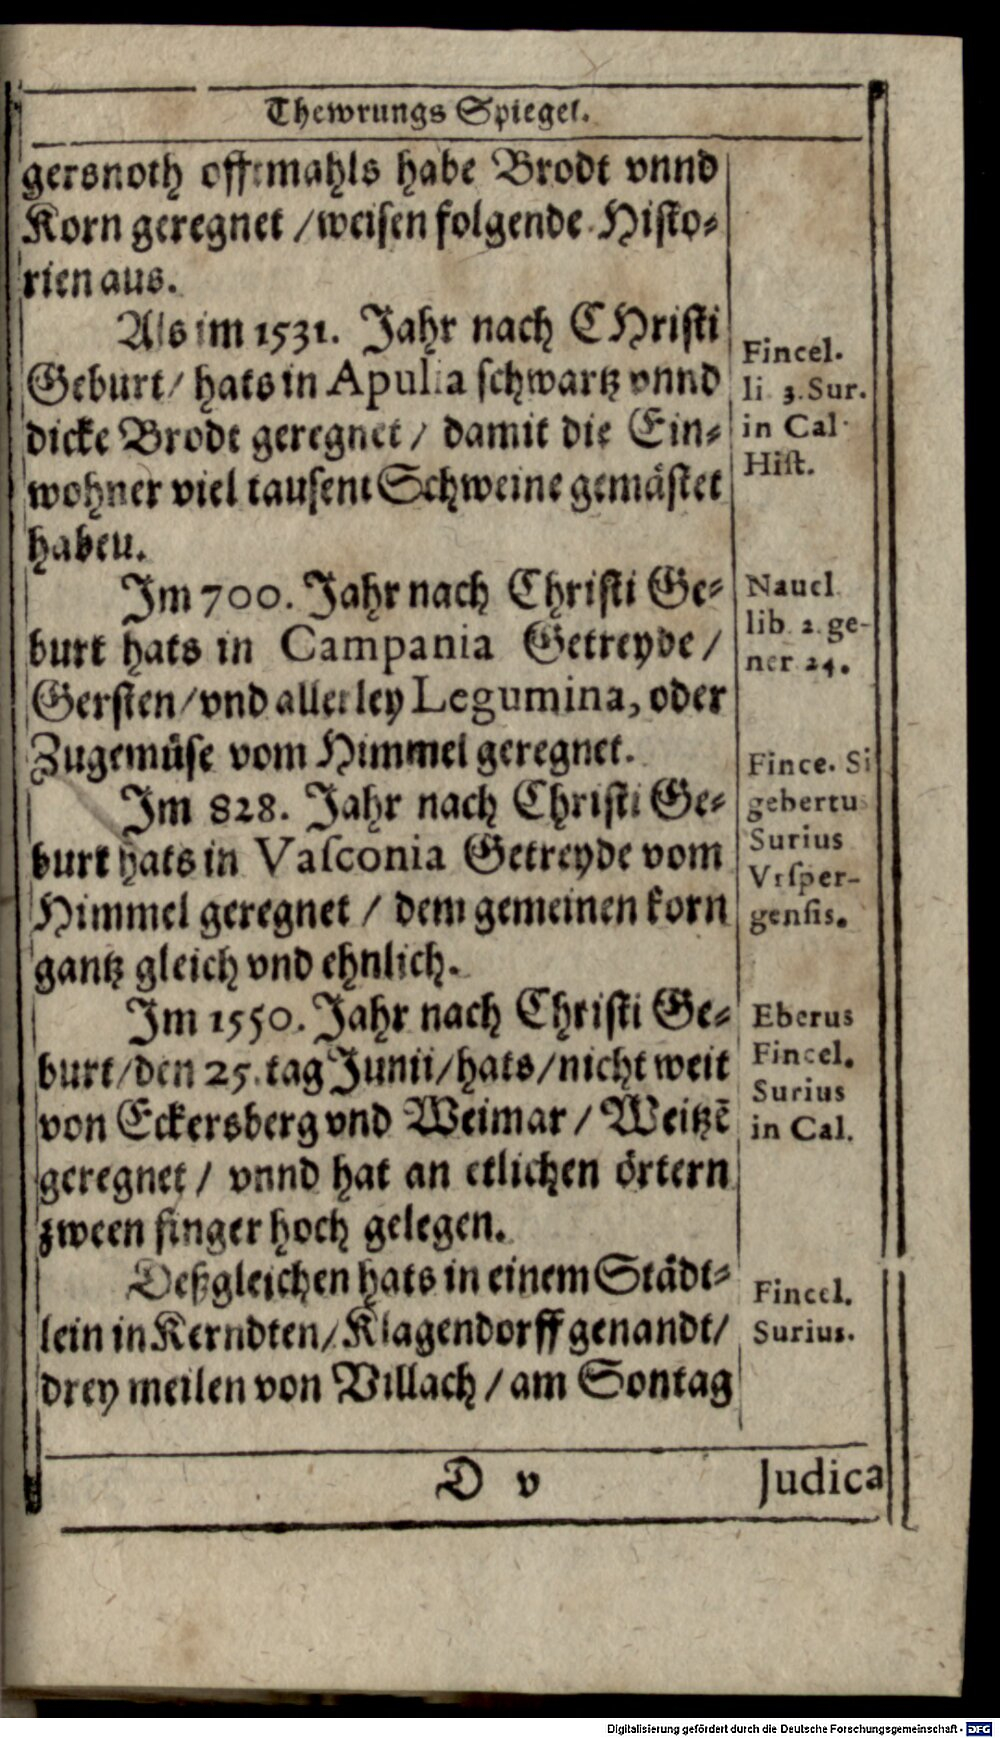 Thewrungs Spiegel.
gersnoth offtmahls habe Brodt vnnd
Korn geregnet / weisen folgende Histo-
rien aus.
Als im 1531. Jahr nach CHristi
Geburt / hats in Apulia schwartz vnnd
dicke Brodt geregnet / damit die Ein-
wohner viel tausent Schweine gemästet
haben.
Fincel.
li 3. Sur.
in Cal
Hist.
Im 700. Jahr nach Christi Ge-
burt hats in Campania Getreyde /
Gersten / vnd allerley Legumina, oder
Zugemüse vom Himmel geregnet.
Naucl
lib 2 ge-
ner 24.
Im 828. Jahr nach Christi Ge-
burt hats in Vasconia Getreyde vom
Himmel geregnet / dem gemeinen korn
gantz gleich vnd ehnlich.
Fince. Si
gebertu
Surius
Vrsper-
gensis.
Im 1550. Jahr nach Christi Ge-
burt / den 25. tag Junii / hats / nicht weit
von Eckersberg vnd Weimar / Weitzē
geregnet / vnnd hat an etlichen örtern
zween finger hoch gelegen.
Eberus
Fincel.
Surius
in Cal.
Deßgleichen hats in einem Städt-
lein in Kerndten / Klagendorff genandt /
drey meilen von Villach / am Sontag
Fincel.
Surius.
D v
Judica
Digitalisierung gefördert durch die Deutsche Forschungsgemeinschaft - DFG